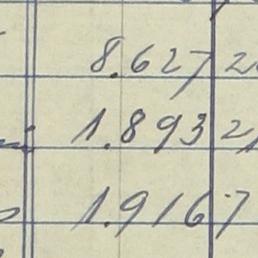 8.627 2
1.893 2
1.916 7